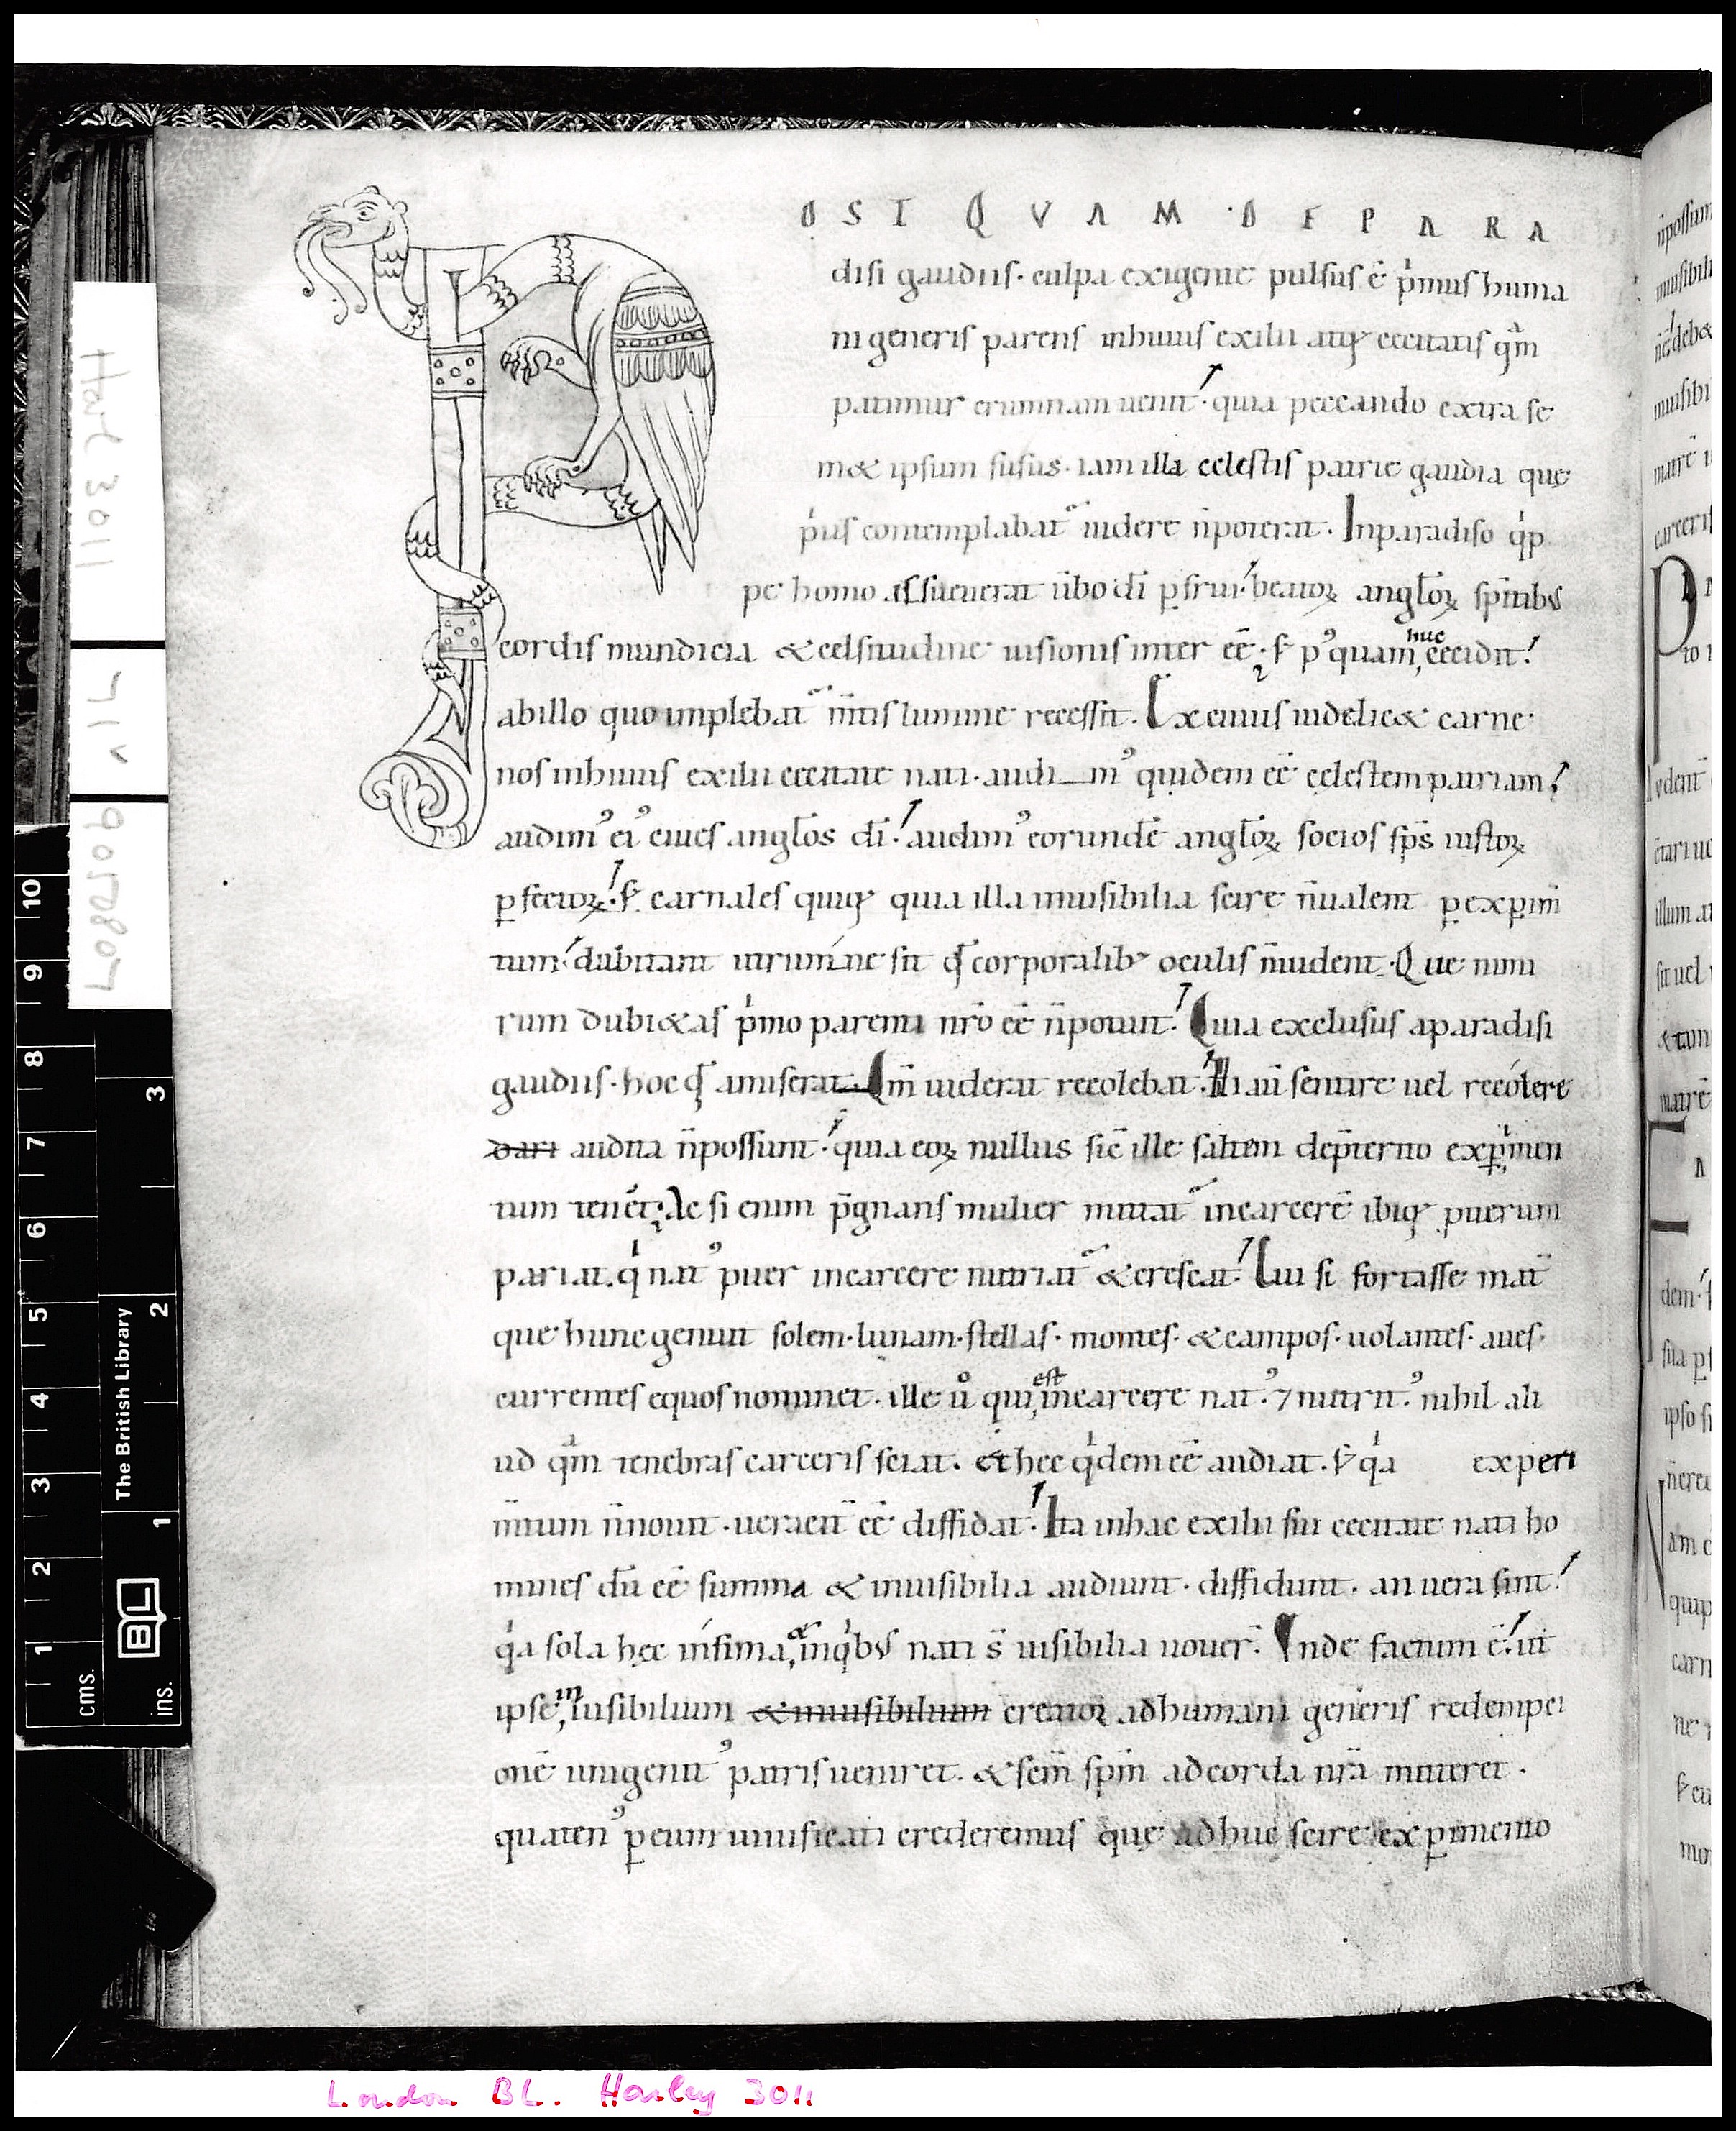 OST QVAM DE PARA
disi gaudiis· culpa exigente pulsus ē p̍mus huma
ni generis parens inhuius exilii atq; cecitatis q̄m
patimur erumnam uenit· quia peccando extra se
m& ipsum fusus· iam illa celestis patrie gaudia quę
p̍us contemplabat̄ uidere n̄poterat. Inparadiso q̍p
pe homo assueuerat ūbo dī ꝑfrui· beatoꝝ angl̄oꝝ sp̄itibus
cordis mundicia & celsitudine uisionis inter eē· s; p᾿quam huc cecidit·
abillo quo implebat̄ m̄tis lumine recessit. Ex cuius uidelic& carne
nos inhuius exilii cecitate nati· audim᾿ quidem eē celestem patriam·
audim᾿ ei᾿ ciues angl̄os dī· audim᾿ eorundē angl̄oꝝ socios sp̄s iustoꝝ
ꝑfectoꝝ· s; carnales quiq; quia illa inuisibilia scire n̄ualent ꝑexꝑim̄
tum· dubitant utrum ne sit qđ corporalib; oculis n̄uident· Que nimi
rum dubi&as p̍mo parenti nr̄o eē n̄potuit· Quia exclusus aparadisi
gaudiis· hoc qđ amiserat Qm̄ uiderat recolebat· Hi aū sentire uel recolere
dari audita n̄possunt· quia eoꝝ nullus sic̄ ille saltem dep̄terito exp̍men
tum ten&· Ac si enim p̄gnans mulier mittat̄ incarcerē ibiq; puerum
pariat. q̍ nat᾿ puer incarcere nutriat̄ & crescat· Cui si fortasse mat̄
que hunc genuit solem· lunam· stellas· montes· & campos· uolantes· aues·
currentes equos nominet· ille ů qui est incarcere nat᾿· 7 nutrit᾿· nihil ali
ud q̄m tenebras carceris sciat. et hęc q̍dem eē audiat· s; q̍a experi
m̄tum n̄nouit· ueracit̄ eē diffidat· Ita inhac exilii sui cecitate nati ho
mines dū eē summa & inuisibilia audiunt· diffidunt· an uera sint·
q̍a sola hęc infima, & inq̍bus nati s̄ uisibilia nouer̄· Vnde factum ē· ut
ipse, in uisibilium & inuisibilium creator adhumani generis redempci
onē unigenit᾿ patris ueniret· & sc̄m sp̄m adcorda nr̄a mitteret·
quaten᾿ ꝑeum uiuificati crederemus quę adhuc scire exꝑimento
Harl 3011
71v
London BL. Harley 3011
The British Library
BL
cms.
ins.
1 2 3 4 5 6 7 8 9 10
1 2 3